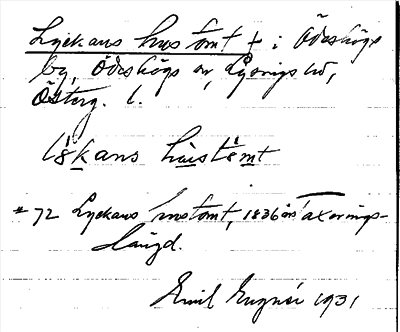 Lyckans hustomt + i Ödeshögs
by, Ödeshögs sn, Lysings hd,
Österg. l.
lykans hustomt
* 72 Lyckans hustomt, 1836 års taxerings-
längd.
Emil 1931